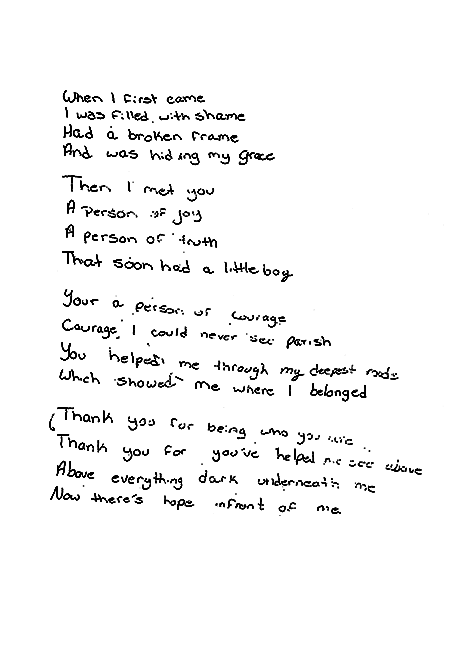 When I first came
I was filled with shame
Had a broken frame
And was hiding my grace
Then I met you
A person of joy
A person of truth
That soon had a little boy
Your a person of courage
Courage I could never see parish
You helped me through my deepest
Which showed me where I belonged
Thank you for being who you are
Thank you for you've helped me see above
Above everything dark underneath me
Now there's hope infront of me